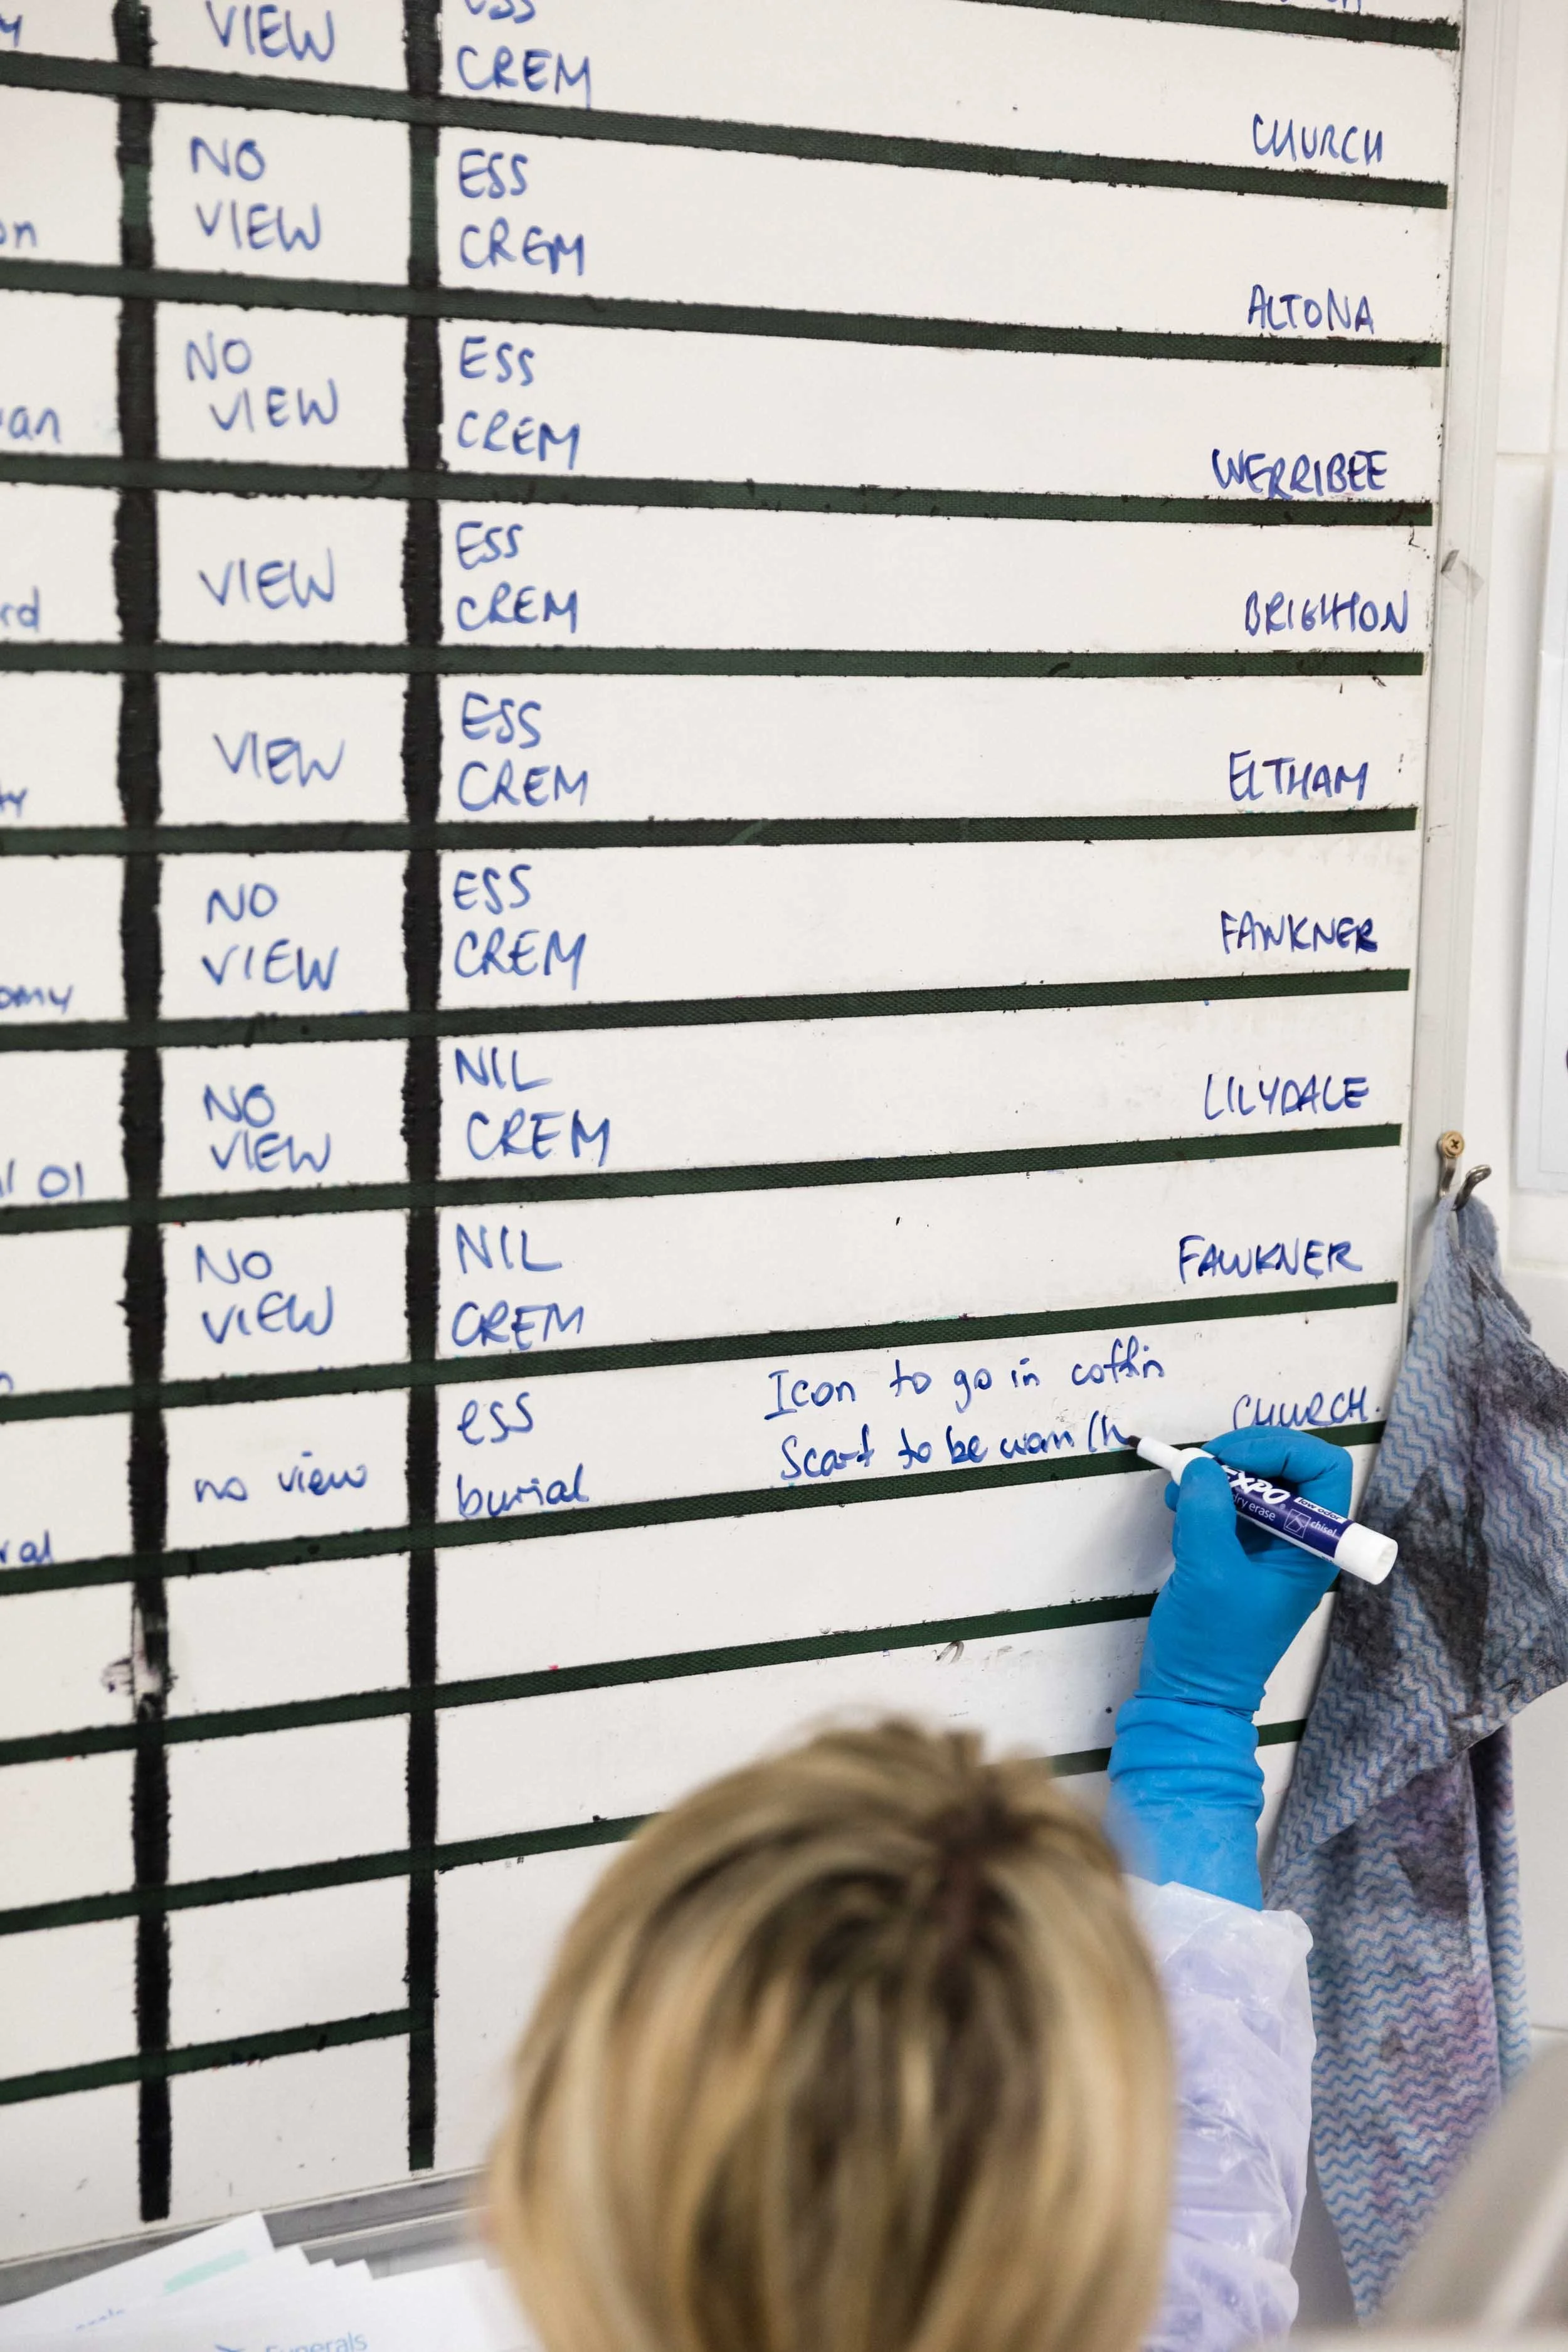 VIEW
CREM
CHURCH
on
NO
VIEW
ESS
CREM
ALTONA
an
NO
VIEW
ESS
CREM
WERRIBEE
rd
VIEW
ESS
CREM
BRIGHTON
VIEW
ESS
CREM
ELTHAM
omy
NO
VIEW
ESS
CREM
FAWKNER
01
NO
VIEW
NIL
CREM
LILYDALE
NO
VIEW
NIL
CREM
FAWKNER
ral
no view
ess
burial
Icon to go in coffin
Scarf to be worn
CHURCH.
EXPO
low odor
dry erase
chisel
Funerals